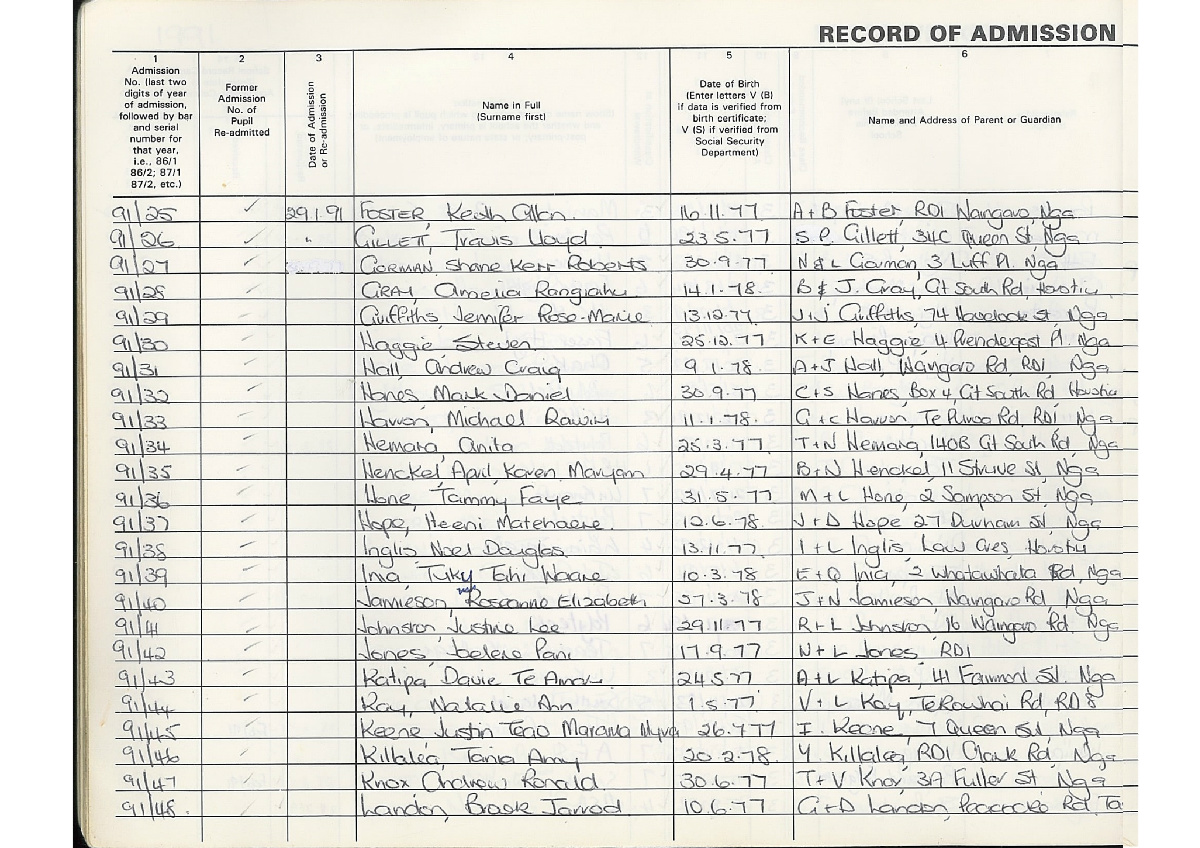 RECORD OF ADMISSION
1 2 3 4 5 6
Admission No. (last two digits of year of admission, followed by bar and serial number for that year, i.e., 86/1 86/2; 87/1 87/2, etc.)
Former Admission No. of Pupil Re-admitted
Date of Admission or Re-admission
Name in Full (Surname first)
Date of Birth (Enter letters V (B) if data is verified from birth certificate; V (S) if verified from Social Security Department)
Name and Address of Parent or Guardian
91/25 ✓ 29.1.91 FOSTER, Keith Allan. 16.11.77 A+B Foster, RD1 Waingaro, Nga
91/26 ✓ " GILLETT, Travis Lloyd. 23.5.77 S.P. Gillett, 34C Queen St, Nga
91/27 ✓ GORMAN Shane Kerr Roberts 30.9.77 N & L Gorman, 3 Luff Pl. Nga
91/28 ✓ GRAY, Amelia Rangiahu 14.1.78. B & J. Gray, Gt South Rd,
91/29 ✓ Griffiths, Jennifer Rose-Marie 13.12.77 J+J Griffiths, 74 Havelock St, Nga
91/30 ✓ Haggie, Steven 25.12.77 K+E Haggie, 4 Prendergast Pl. Nga
91/31 ✓ Hall, Andrew Craig 9.1.78. A+J Hall, Waingaro Rd, RD1, Nga
91/32 ✓ Hanes Mark Daniel 30.9.77 C+S Hanes, Box 4, Gt South Rd
91/33 ✓ Michael Rawiri 11.1.78. G+C Rd, RD1, Nga
91/34 ✓ Hemara, Anita 25.3.77 T+N Hemara, 140B Gt South Rd, Nga
91/35 ✓ Henckel, April, Karen Maryam 29.4.77 B+N Henckel, 11 Struve St, Nga
91/36 ✓ Hone, Tammy Faye 31.5.77 M+L Hone, 2 Sampson St, Nga
91/37 ✓ Hope, Heeni Matehaere. 12.6.78. J+D Hope 27 Durham St, Nga
91/38 ✓ Inglis, Noel Douglas. 13.11.77. I+L Inglis, Law Cres,
91/39 ✓ Inia, Tuky Tahi Waare 10.3.78 E+Q Inia, 2 Whatawhata Rd, Nga
91/40 ✓ Jamieson, Roseanne Elizabeth 27.3.78 J+N Jamieson, Waingaro Rd, Nga
91/41 ✓ Johnston, Justine Lee 29.11.77 R+L Johnston, 16 Waingaro Rd. Nga
91/42 ✓ Jones, Joelene Pani 17.9.77 N+L Jones, RD1
91/43 ✓ Katipa Davie Te 24.5.77 A+L Katipa, 41 Fairmont St. Nga
91/44 ✓ Kay, Natalie Ann 1.5.77 V+L Kay, TeKowhai Rd, RD8
91/45 ✓ Keene Justin Teao Marama Myra 26.7.77 I. Keene, 7 Queen St, Nga
91/46 ✓ Killalea, Tania Amy 20.2.78. Y Killalea, RD1 Clark Rd, Nga
91/47 ✓ Knox Andrew Ronald 30.6.77 T+V Knox, 3A Fuller St Nga
91/48. ✓ Landon, Brook Jarrod 10.6.77 G+D Landon, Peacocke Rd, Ta